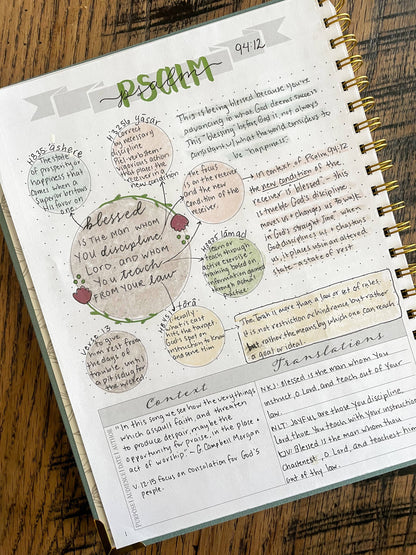 PSALM
psalm
94:12
This is being blessed because you're
advancing in what God deems success
This blessing before God is not always
consistent w/ what the world considers to
be "happiness."
H835 'ashere
The state
of prosperity or
happiness that
comes when a
superior bestows
his favor on
one
H3256 yasar
Correct
by necessary
discipline
Piel-verb stem-
vigorous action
that places the
receiver in a
new condition
the focus
is on the receiver
and the new
condition of the
receiver
In context of Psalm 94:12
the new condition of the
receiver is "blessed" - this
is true b/c God's discipline
moves us + changes us "to walk
in God's straight line" when
God disciplines us + chastises
us, it places us in an altered
state - a state of rest
blessed
IS THE MAN WHOM
YOU discipline,
LORD, and WHOM
YOU teach
FROM YOUR law
H3925 lamad
learn or
teach through
active exercise
training based on
the information gained
through actual
practice
tôrâ
literally
what is cast
hits the target
God's spot on
instruction to know
and serve him
The Torah is more than a law or set of rules
It is not restriction or hindrance but rather
but rather the means by which one can reach
a goal or ideal.
verse 13
to give
him rest from
the days of
trouble, until
a pit is dug for
the wicked
Context
"In this song we see how the very things
which assault faith, and threaten
to produce despair, may be the
opportunity for praise, in the place +
act of worship." ~ G Campbell Morgan
v. 12-13 focus on consolation for God's
people.
Translations
NKJ: Blessed is the man whom You
instruct, O Lord, and teach out of Your
law.
NLT: Joyful are those you discipline,
Lord, those You teach with Your instructions
KJV: Blessed is the man whom thou
chastenest, O Lord, and teachest him
out of thy law.